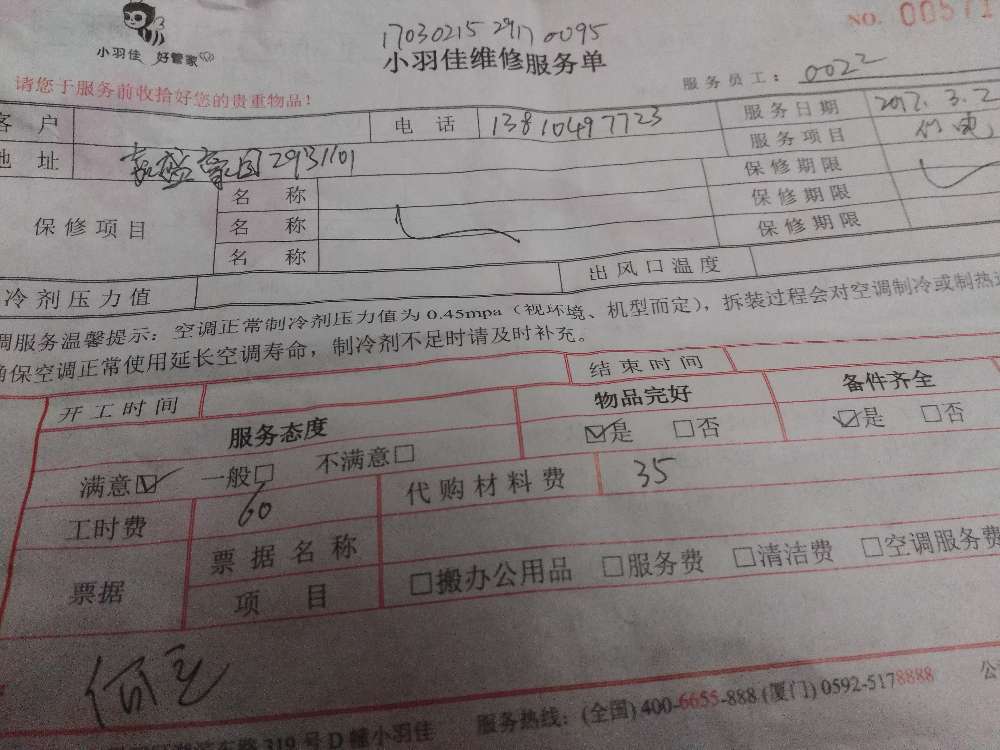 NO. 00571
17030215 2917 0095
小羽佳 好管家
小羽佳维修服务单
请您于服务前收拾好您的贵重物品！
服务员工： 0022
客 户 电 话 13810497723 服务日期 2017.3.2
地 址 293 1101 服务项目
保修项目
名 称 保修期限
名 称 保修期限
名 称 保修期限
冷剂压力值 出风口温度
调服务温馨提示：空调正常制冷剂压力值为 0.45mpa（视环境、机型而定），拆装过程会对空调制冷或制热
确保空调正常使用延长空调寿命，制冷剂不足时请及时补充。
开工时间 结束时间
服务态度 物品完好 备件齐全
满意☑ 一般□ 不满意□ ☑是 □否 ☑是 □否
工时费 60 代购材料费 35
票据 票据名称
项 目 □搬办公用品 □服务费 □清洁费 □空调服务费
服务热线：(全国) 400-6655-888 (厦门) 0592-5178888 公
东路 319 号 D 幢小羽佳